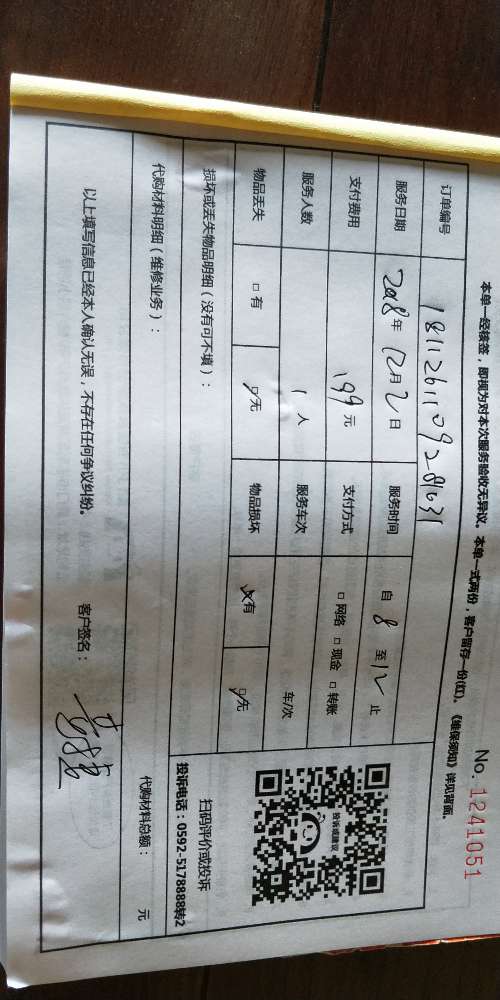 No. 1241051
本单一经核签，即视为对本次服务验收无异议。本单一式两份，客户留存一份(红)。《维保须知》详见背面。
订单编号 1811261109281031
服务日期 2018年12月2日 服务时间 自 8 至 12 止
支付费用 199元 支付方式 □网络 □现金 □转账
服务人数 1人 服务车次 车/次
物品丢失 □有 □无 物品损坏 □有 □无
损坏或丢失物品明细（没有可不填）：
投诉或建议
扫码评价或投诉
投诉电话：0592-5178888转2
代购材料明细（维修业务）：
代购材料总额： 元
以上填写信息已经本人确认无误，不存在任何争议纠纷。 客户签名：